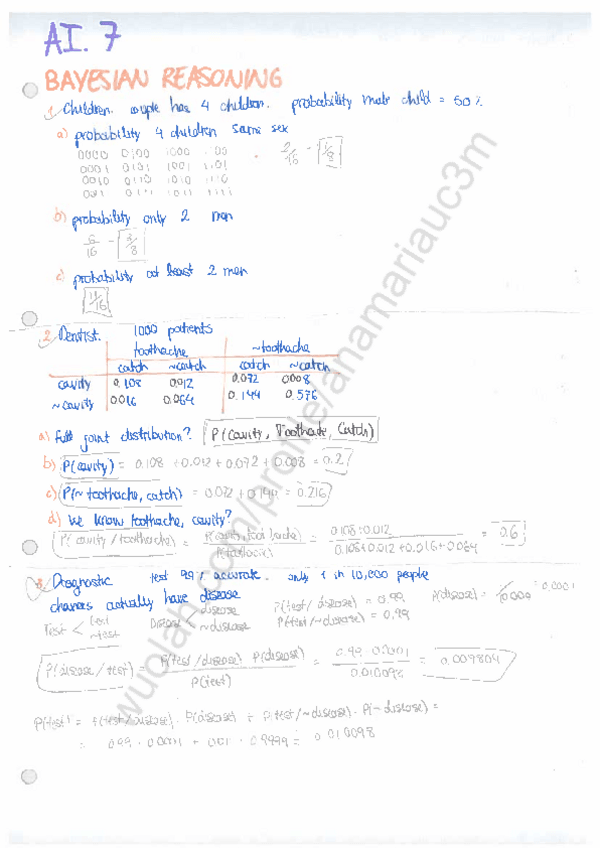 AI. 7
BAYESIAN REASONING
1. Children. couple has 4 children. probability male child = 50%
a) probability 4 children same sex
0000 0100 1000 1100
0001 0101 1001 1101 2/16 = 1/8
0010 0110 1010 1110
0011 0111 1011 1111
b) probability only 2 men
6/16 = 3/8
c) probability at least 2 men
11/16
2. Dentist. 1000 patients
toothache ~toothache
catch ~catch catch ~catch
cavity 0.108 0.012 0.072 0.008
~cavity 0.016 0.064 0.144 0.576
a) Full joint distribution? P(cavity, Toothache, Catch)
b) P(cavity) = 0.108 + 0.012 + 0.072 + 0.008 = 0.2
c) P(~toothache, catch) = 0.072 + 0.144 = 0.216
d) We know toothache, cavity?
P(cavity / toothache) = P(cavity, toothache) / P(toothache) = 0.108+0.012 / 0.108+0.012+0.016+0.064 = 0.6
3. Diagnostic test 99% accurate. only 1 in 10,000 people
chances actually have disease
Test < test ~test Disease < disease ~disease P(test / disease) = 0.99 P(disease) = 1/10000 = 0.0001
P(test / ~disease) = 0.99
P(disease / test) = P(test / disease) · P(disease) / P(test) = 0.99 · 0.0001 / 0.010098 = 0.009804
P(test) = P(test / disease) · P(disease) + P(test / ~disease) · P(~disease) =
= 0.99 · 0.0001 + 0.01 · 0.9999 = 0.010098
wuolah.com/profile/anamariauc3m